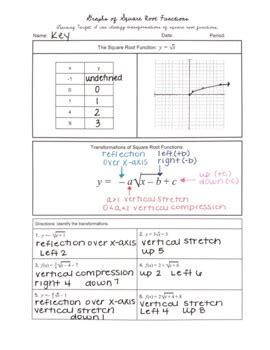 Graphs of Square Root Functions
Learning Target: I can identify transformations of square root functions.
Name: Key Date: Period:
The Square Root Function: y = √x
x y
-1 undefined
0 0
1 1
4 2
9 3
Transformations of Square Root Functions:
reflection over x-axis
left (+b) right (-b)
y = -a√x - b + c
up (+c) down (-c)
a>1 vertical stretch
0<a<1 vertical compression
Directions: Identify the transformations.
reflection over x-axis
left 2
vertical stretch
up 5
vertical compression
right 4 down 7
up 2 left 6
reflection over x-axis
vertical stretch
down 1
vertical stretch
left 4 up 8